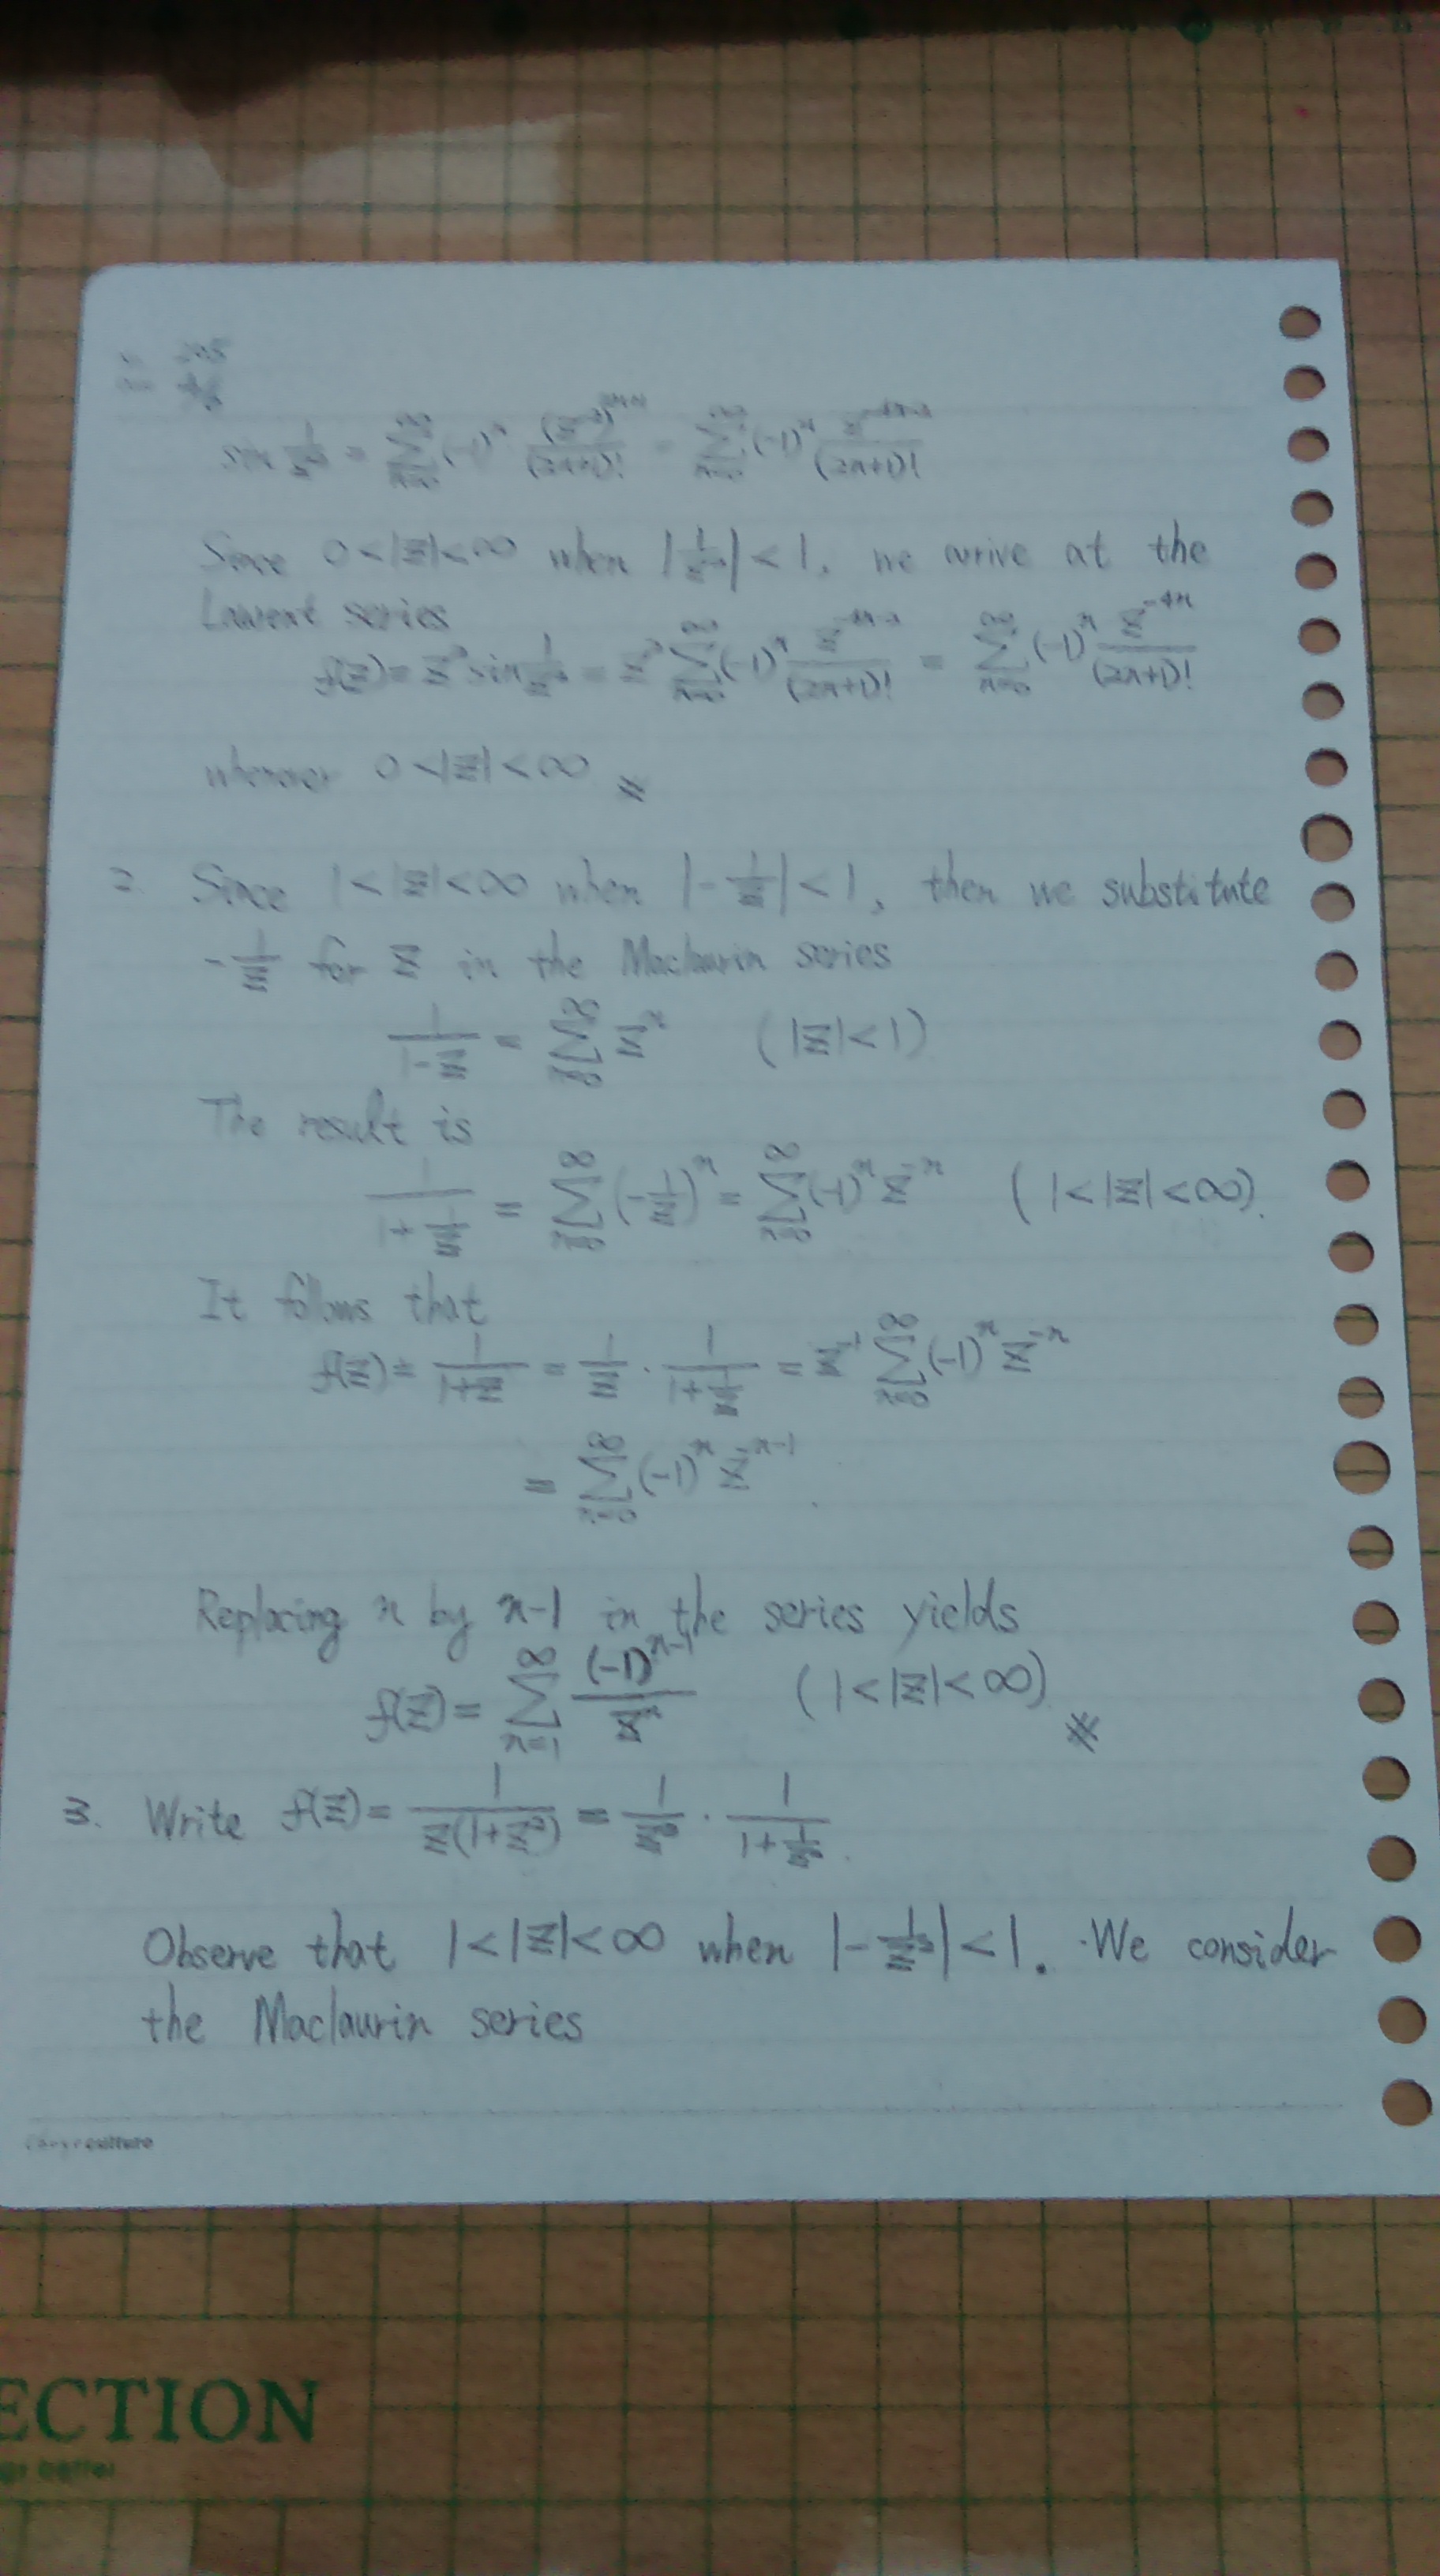 sin 1/z² = ∑_{n=0}^{∞} (-1)^n (z^{-2})^{2n+1}/(2n+1)! = ∑_{n=0}^{∞} (-1)^n z^{-4n-2}/(2n+1)!
Since 0<|z|<∞ when |1/z²|<1, we arrive at the
Laurent series
f(z)= z² sin 1/z² = z² ∑_{n=0}^{∞} (-1)^n z^{-4n-2}/(2n+1)! = ∑_{n=0}^{∞} (-1)^n z^{-4n}/(2n+1)!
whenever 0<|z|<∞ #
2. Since 1<|z|<∞ when |-1/z|<1, then we substitute
-1/z for z in the Maclaurin series
1/(1-z) = ∑_{n=0}^{∞} z^n (|z|<1)
The result is
1/(1+1/z) = ∑_{n=0}^{∞} (-1/z)^n = ∑_{n=0}^{∞} (-1)^n z^{-n} (1<|z|<∞).
It follows that
f(z) = 1/(1+z) = 1/z · 1/(1+1/z) = z^{-1} ∑_{n=0}^{∞} (-1)^n z^{-n}
= ∑_{n=0}^{∞} (-1)^n z^{-n-1}.
Replacing n by n-1 in the series yields
f(z) = ∑_{n=1}^{∞} (-1)^{n-1}/z^n (1<|z|<∞) #
3. Write f(z) = 1/(z(1+z²)) = 1/z³ · 1/(1+1/z²).
Observe that 1<|z|<∞ when |-1/z²|<1. We consider
the Maclaurin series
culture
ECTION